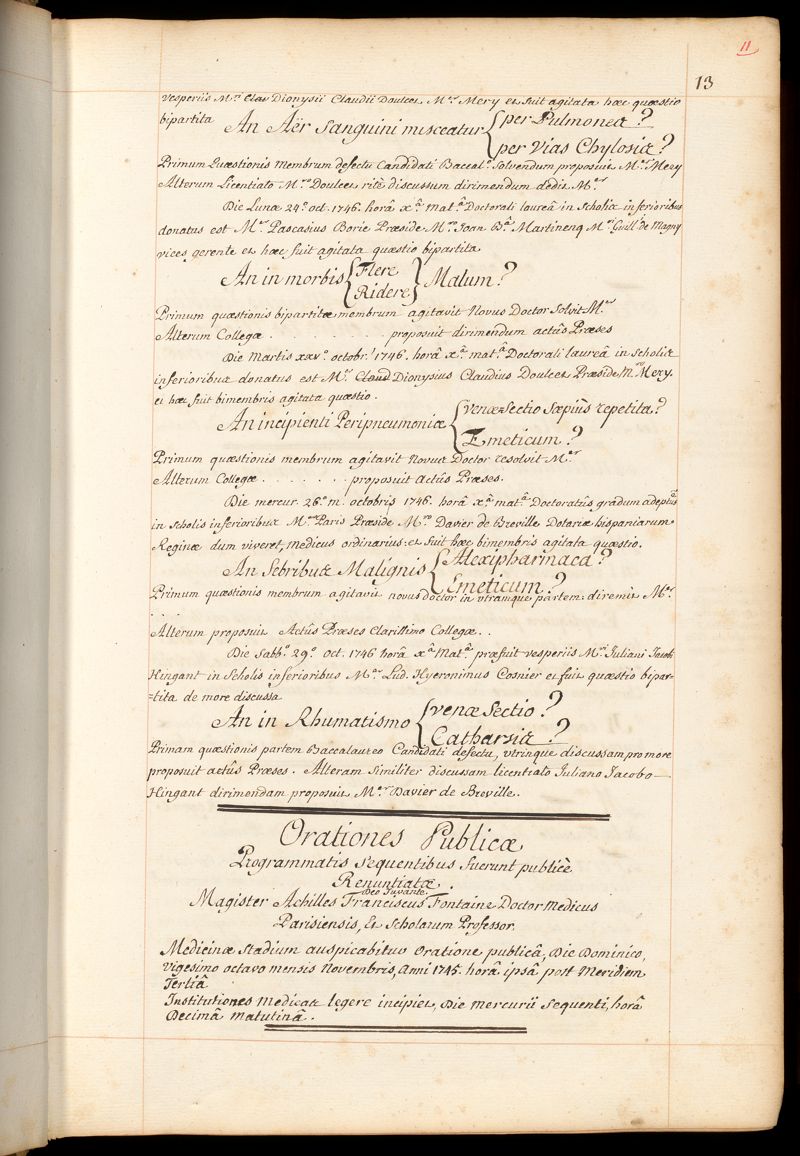 11
13
Vesperiis M.ri Dionysii Claudii Doulcet M.er Mery et fuit agitata hæc quæstio
bipartita An Aër Sanguini misceatur { per Pulmones ?
per Vias Chylosis ?
Primum Quæstionis Membrum defectu Candidati Baccal.i Solvendum proposuit M.er Mery
Alterum Licentiato M.ro Doulcet ritè discussum dirimendum dedit M.er
Die Lunæ 24.o oct. 1746. horâ x.â mat.â Doctorali laureâ in Scholis inferioribus
donatus est M.er Pascasius Borie Præside M.ro Joan B.â Martinenq M.ri Guill. de Magny
vices gerente et hæc fuit agitata quæstio bipartita
An in morbis { Flere
Ridere } Malum ?
Primum quæstionis bipartitæ membrum agitavit Novus Doctor Solvit M.er
Alterum Collegæ . . . . . . . . . . proposuit dirimendum actûs Præses
Die Martis xxv.o octobr. 1746. horâ x.â mat.â Doctorali laureâ in Scholis
inferioribus donatus est M.er Claud Dionysius Claudius Doulcet Præside M.ro Mery.
et hæc fuit bimembris agitata quæstio .
An incipienti Peripneumoniæ { venæ Sectio Sæpiùs repetita ?
Emeticum ?
Primum quæstionis membrum agitavit Novus Doctor resolvit M.er
Alterum Collegæ . . . . . . . proposuit actûs Præses.
Die mercur. 26.o m. octobris 1746. horâ x.â mat.â Doctoratûs gradum adeptus
in Scholis inferioribus M.er Paris Præside M.ro Davier de Breville Dotariæ hispaniarum
Reginæ dum viveret, medicus ordinarius: et fuit hæc bimembris agitata quæstio.
An Febribus Malignis { Alexipharmaca ?
Emeticum ?
Primum quæstionis membrum agitavit novus doctor in utramque partem: diremit M.er
. . .
Alterum proposuit Actûs Præses Clarissimo Collegæ . .
Die Sabb.o 29.o oct. 1746 horâ x.â Mat.â præfuit vesperiis M.ri Juliani Jacobi
Hingant in Scholis inferioribus M.er Lud. Hyeronimus Cosnier et fuit quæstio bipar=
=tita de more discussa
An in Rhumatismo { venæ Sectio ?
Catharsis ?
Primam quæstionis partem Baccalaureo Candidati defectu, utrinque discussam, pro more
proposuit actûs Præses . Alteram Similiter discussam licentiato Juliano Jacobo
Hingant dirimendam proposuit M.er Davier de Breville.
Orationes Publicæ
Programmatis Sequentibus fuerunt publicè
Renuntiatæ .
Deo Juvante.
Magister Achilles Franciscus Fontaine Doctor Medicus
Parisiensis, Et Scholarum Professor.
Medicinæ Stadium auspicabitur oratione publicâ, Die Dominico,
vigesimo octavo mensis Novembris, Anni 1745. horâ ipsâ post Meridiem
Tertiâ
Institutiones Medicas legere incipiet, Die Mercurii Sequenti, horâ
Decimâ matutinâ .